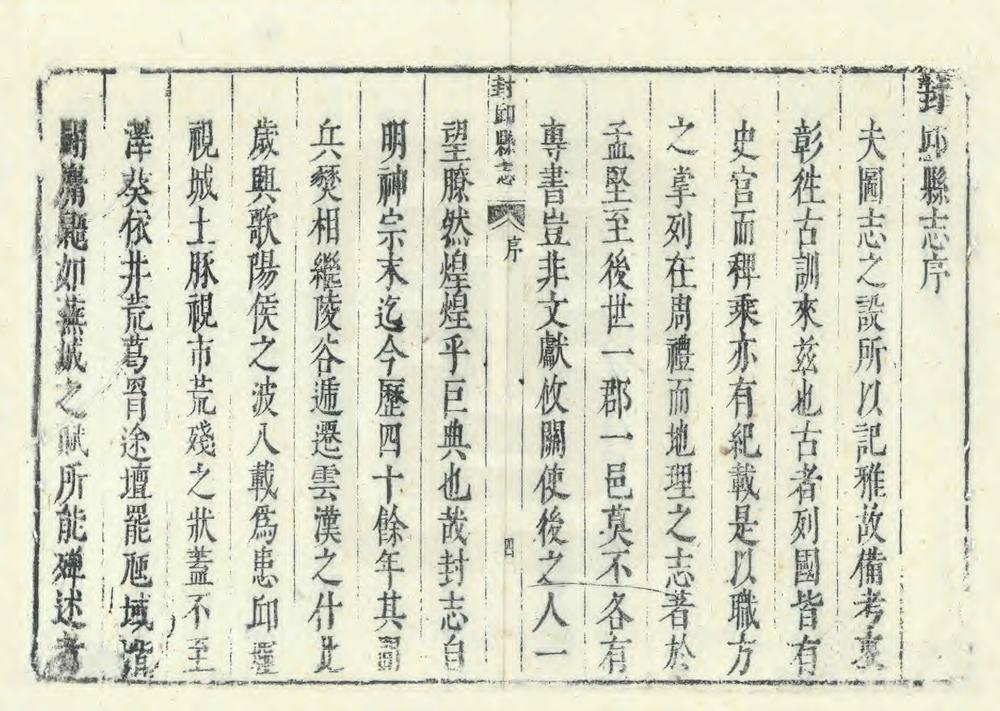 封邱縣志序
夫圖志之設所以記雅故備考
彰徃古訓來茲也古者列國皆有
史官而稗乘亦有紀載是以職方
之掌列在周禮而地理之志著於
孟堅至後世一郡一邑莫不各有
專書豈非文獻攸關使後之人一
封邱縣志
序
四
望瞭然煌煌乎巨典也哉封志自
明神宗末迄今歷四十餘年其間
兵燹相繼陵谷遞遷雲漢之什比
歲興歌陽侯之波八載爲患邱墟
視城土豚視市荒殘之狀蓋不至
澤葵依井荒葛罥途壇罷虺域階
鬭麏鼯如蕪城之賦所能殫述者